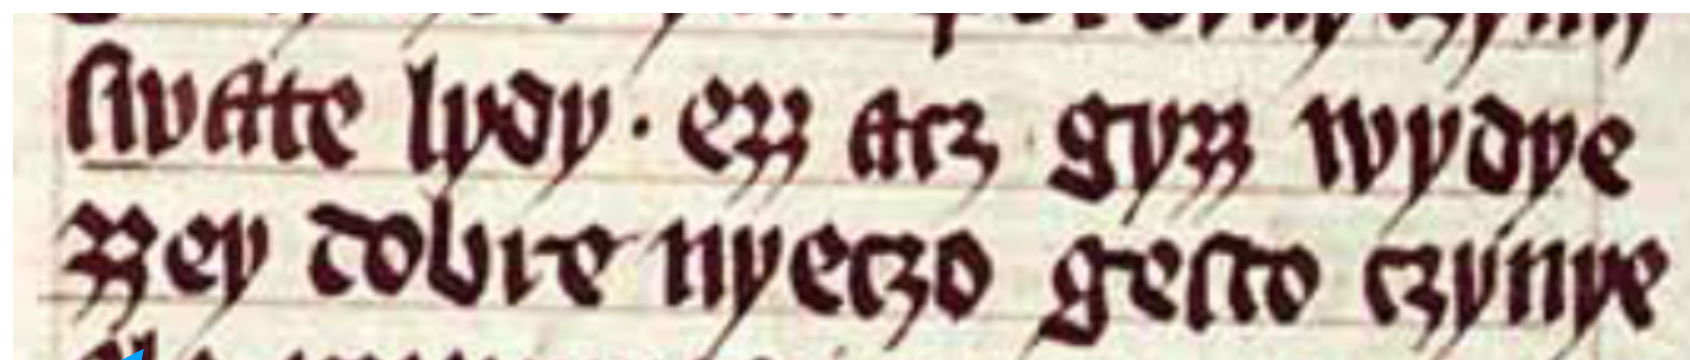 ſwate lydy · ezz acz gyzz wydye
zzey dobre nyeczo geſto czynye